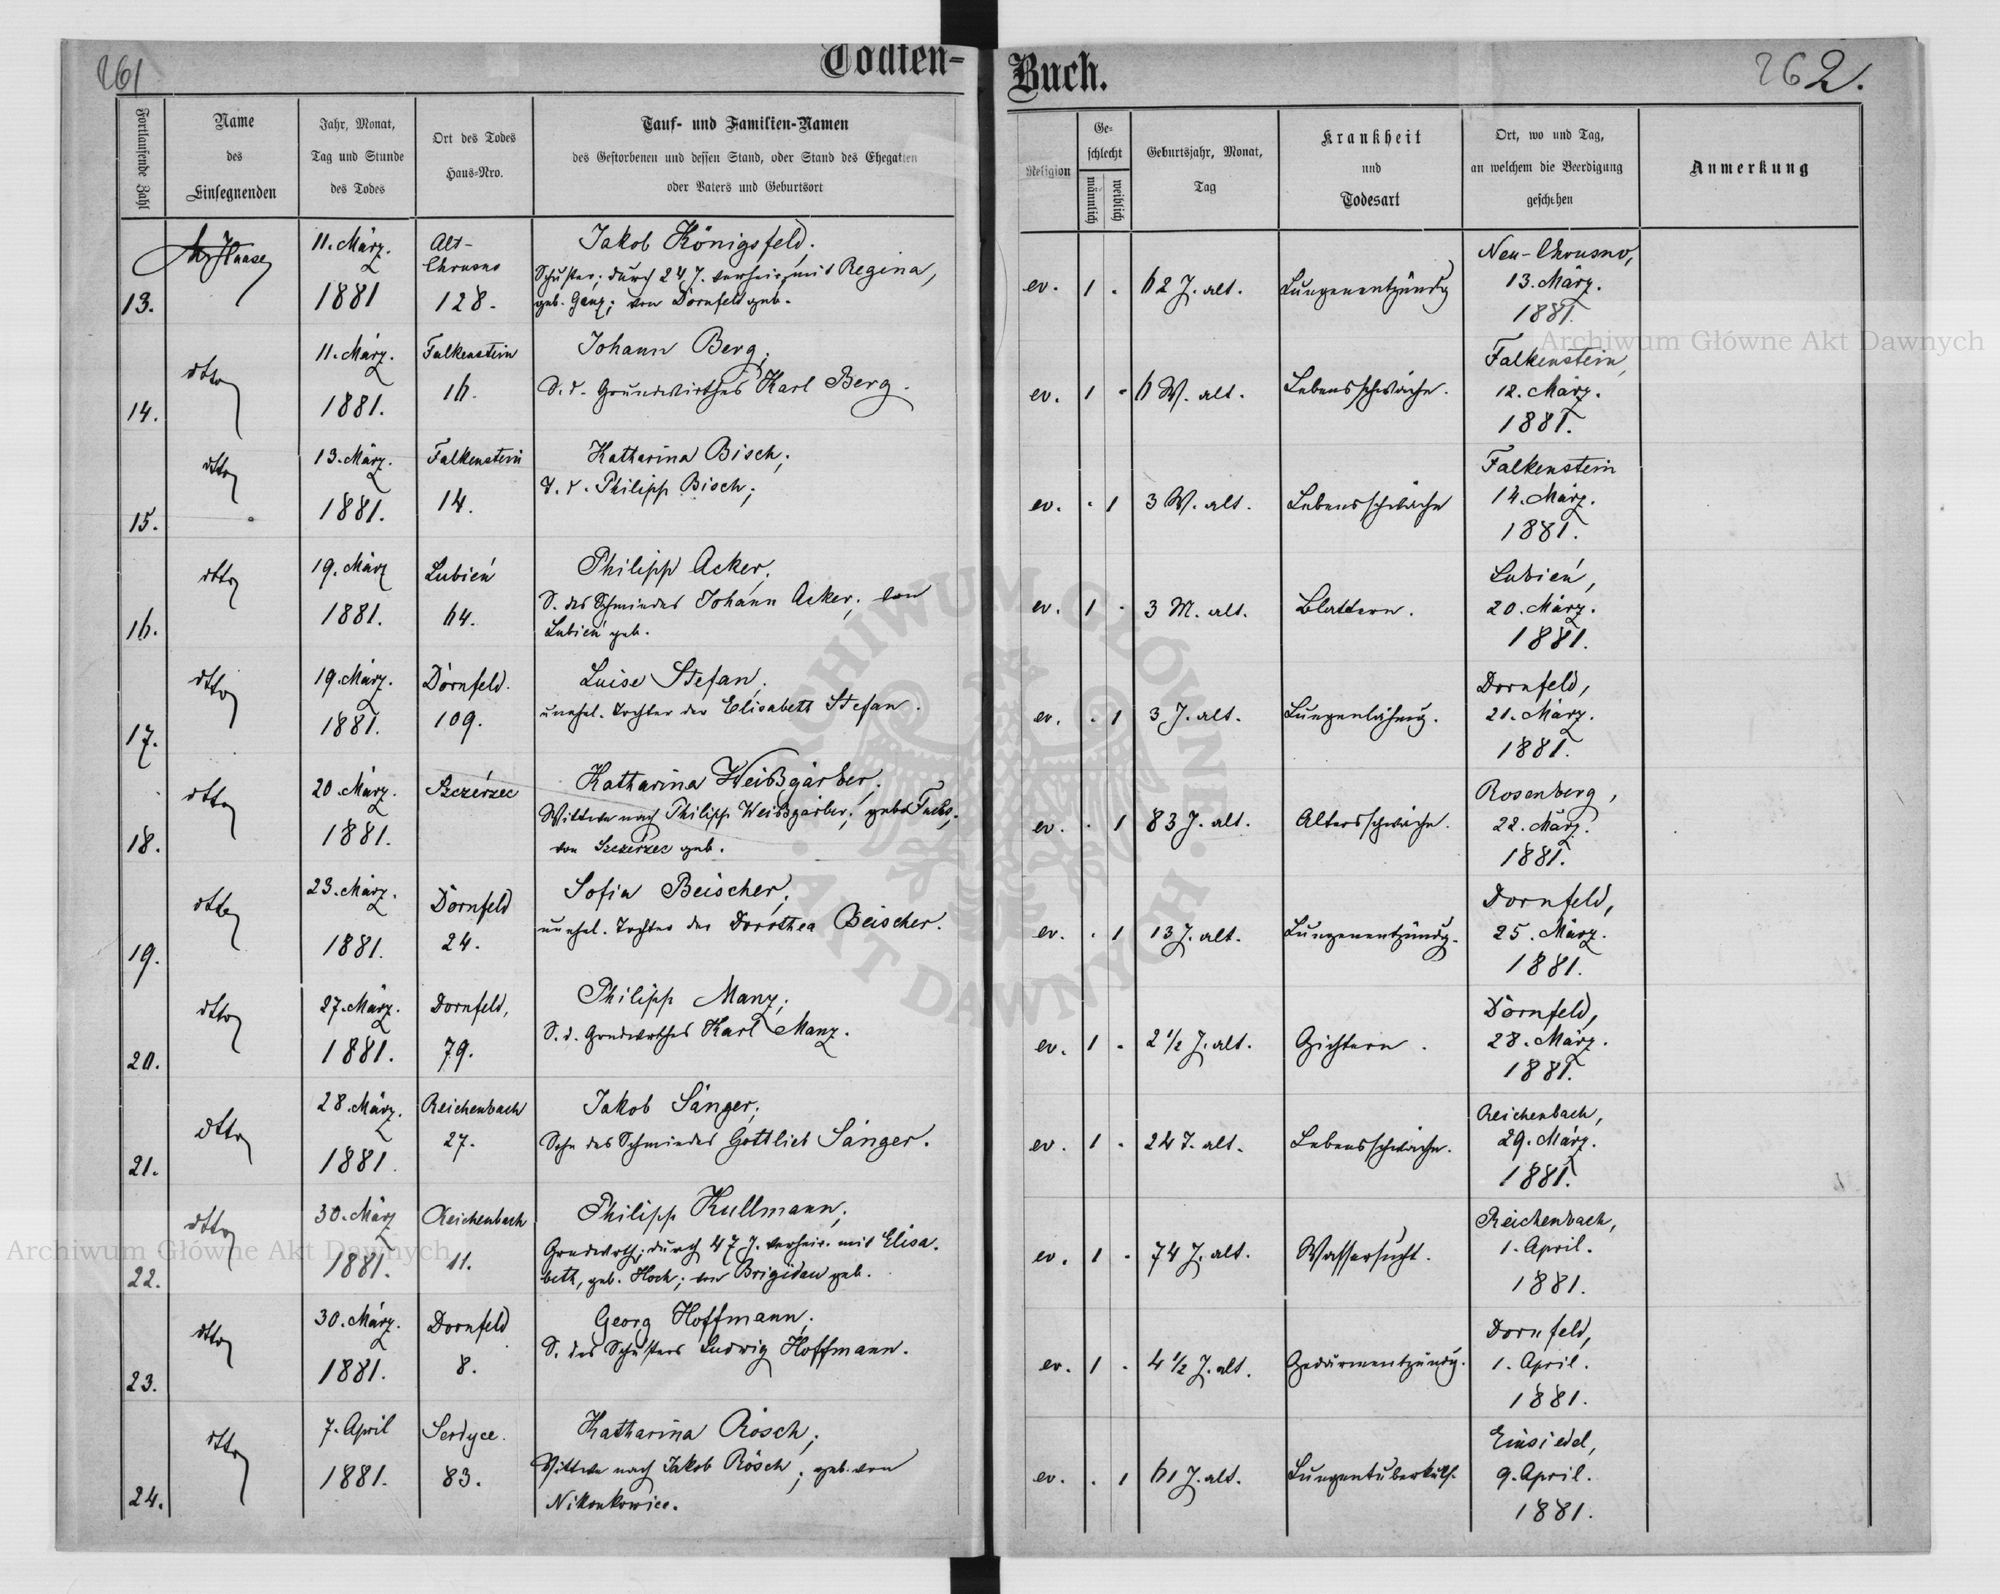 261
Todten-
Buch.
262.
Fortlaufende Zahl
Name
des
Einsegnenden
Jahr, Monat,
Tag und Stunde
des Todes
Ort des Todes
Haus-Nro.
Tauf- und Familien-Namen
des Gestorbenen und dessen Stand, oder Stand des Ehegatten
oder Vaters und Geburtsort
Religion
Ge-
schlecht
männlich
weiblich
Geburtsjahr, Monat,
Tag
Krankheit
und
Todesart
Ort, wo und Tag,
an welchem die Beerdigung
geschehen
Anmerkung
13.
Haase
11. März.
1881
Alt-
Chrusno
128.
Jakob Königsfeld,
Schuster; durch 24 J. verheir. mit Regina,
geb. Ganz; von Dornfeld geb.
ev. 1 .
62 J. alt.
Lungenentzündg
Neu-Chrusno,
13. März.
1881.
14.
dtto
11. März.
1881.
Falkenstein
16.
Johann Berg,
S. d. Grundwirthes Karl Berg.
ev. 1 -
6 W. alt.
Lebensschwäche.
Falkenstein,
12. März.
1881.
15.
dtto
13. März.
1881.
Falkenstein
14.
Katharina Bisch,
T. d. Philipp Bisch;
ev. . 1
3 W. alt.
Lebensschwäche
Falkenstein
14. März.
1881.
16.
dtto
19. März
1881.
Lubień
64.
Philipp Acker,
S. des Schmiedes Johann Acker, von
Lubień geb.
ev. 1 -
3 M. alt.
Blattern.
Lubień,
20. März.
1881.
17.
dtto
19. März.
1881.
Dornfeld.
109.
Luise Stefan,
unehel. Tochter der Elisabeth Stefan.
ev. . 1
3 J. alt.
Lungenlähmg.
Dornfeld,
21. März.
1881.
18.
dtto
20. März.
1881.
Szczérzec
Katharina Weißgärber,
Wittwe nach Philipp Weißgärber, geb. Fuchs,
von Szczerzec geb.
ev. . 1
83 J. alt.
Altersschwäche.
Rosenberg,
22. März.
1881.
19.
dtto
23. März.
1881.
Dornfeld
24.
Sofia Beischer,
unehel. Tochter der Dorothea Beischer.
ev. . 1
13 J. alt.
Lungenentzündg.
Dornfeld,
25. März.
1881.
20.
dtto
27. März.
1881.
Dornfeld,
79.
Philipp Manz,
S. d. Grndwirthes Karl Manz.
ev. 1 .
2 1/2 J. alt.
Gichtern.
Dornfeld,
28. März.
1881.
21.
dtto
28. März.
1881.
Reichenbach
27.
Jakob Sänger,
Sohn des Schmiedes Gottlieb Sänger.
ev. 1 .
24 T. alt.
Lebensschwäche.
Reichenbach,
29. März.
1881.
22.
dtto
30. März
1881.
Reichenbach
11.
Philipp Kullmann,
Grndwirth; durch 47 J. verheir. mit Elisa-
beth, geb. Hoch; von Brigidau geb.
ev. 1 -
74 J. alt.
Wassersucht.
Reichenbach,
1. April.
1881.
23.
dtto
30. März.
1881.
Dornfeld
8.
Georg Hoffmann,
S. des Schusters Ludwig Hoffmann.
ev. 1 .
4 1/2 J. alt.
Gedärmentzündg.
Dornfeld,
1. April.
1881.
24.
dtto
7. April
1881.
Serdyce.
83.
Katharina Rösch,
Wittwe nach Jakob Rösch, geb. von
Nikonkowice.
ev. . 1
61 J. alt.
Lungentuberkuls.
Einsiedel,
9. April.
1881.
Archiwum Główne Akt Dawnych
Archiwum Główne Akt Dawnych
ARCHIWUM GŁÓWNE
AKT DAWNYCH